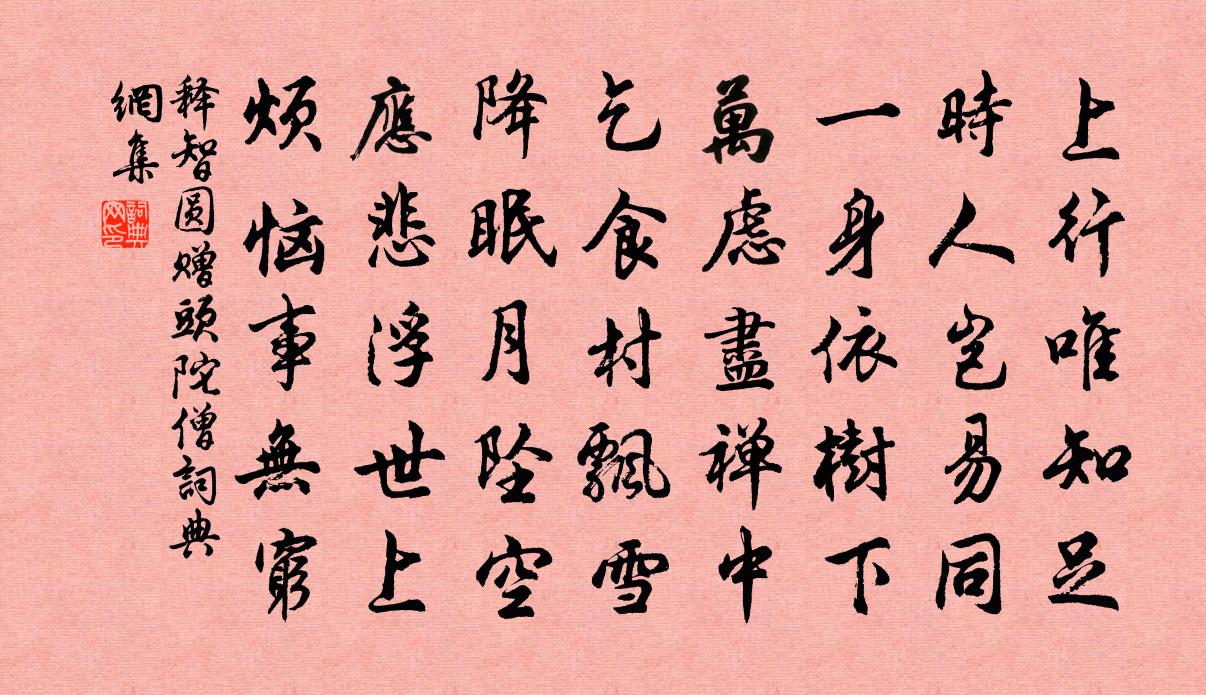 上行唯知足
時人岂易同
一身依樹下
萬慮盡禅中
乞食村飄雪
降眠月坠空
應悲浮世上
煩恼事無窮
释智圆赠頭陀僧詞典
網集
詞典
网印